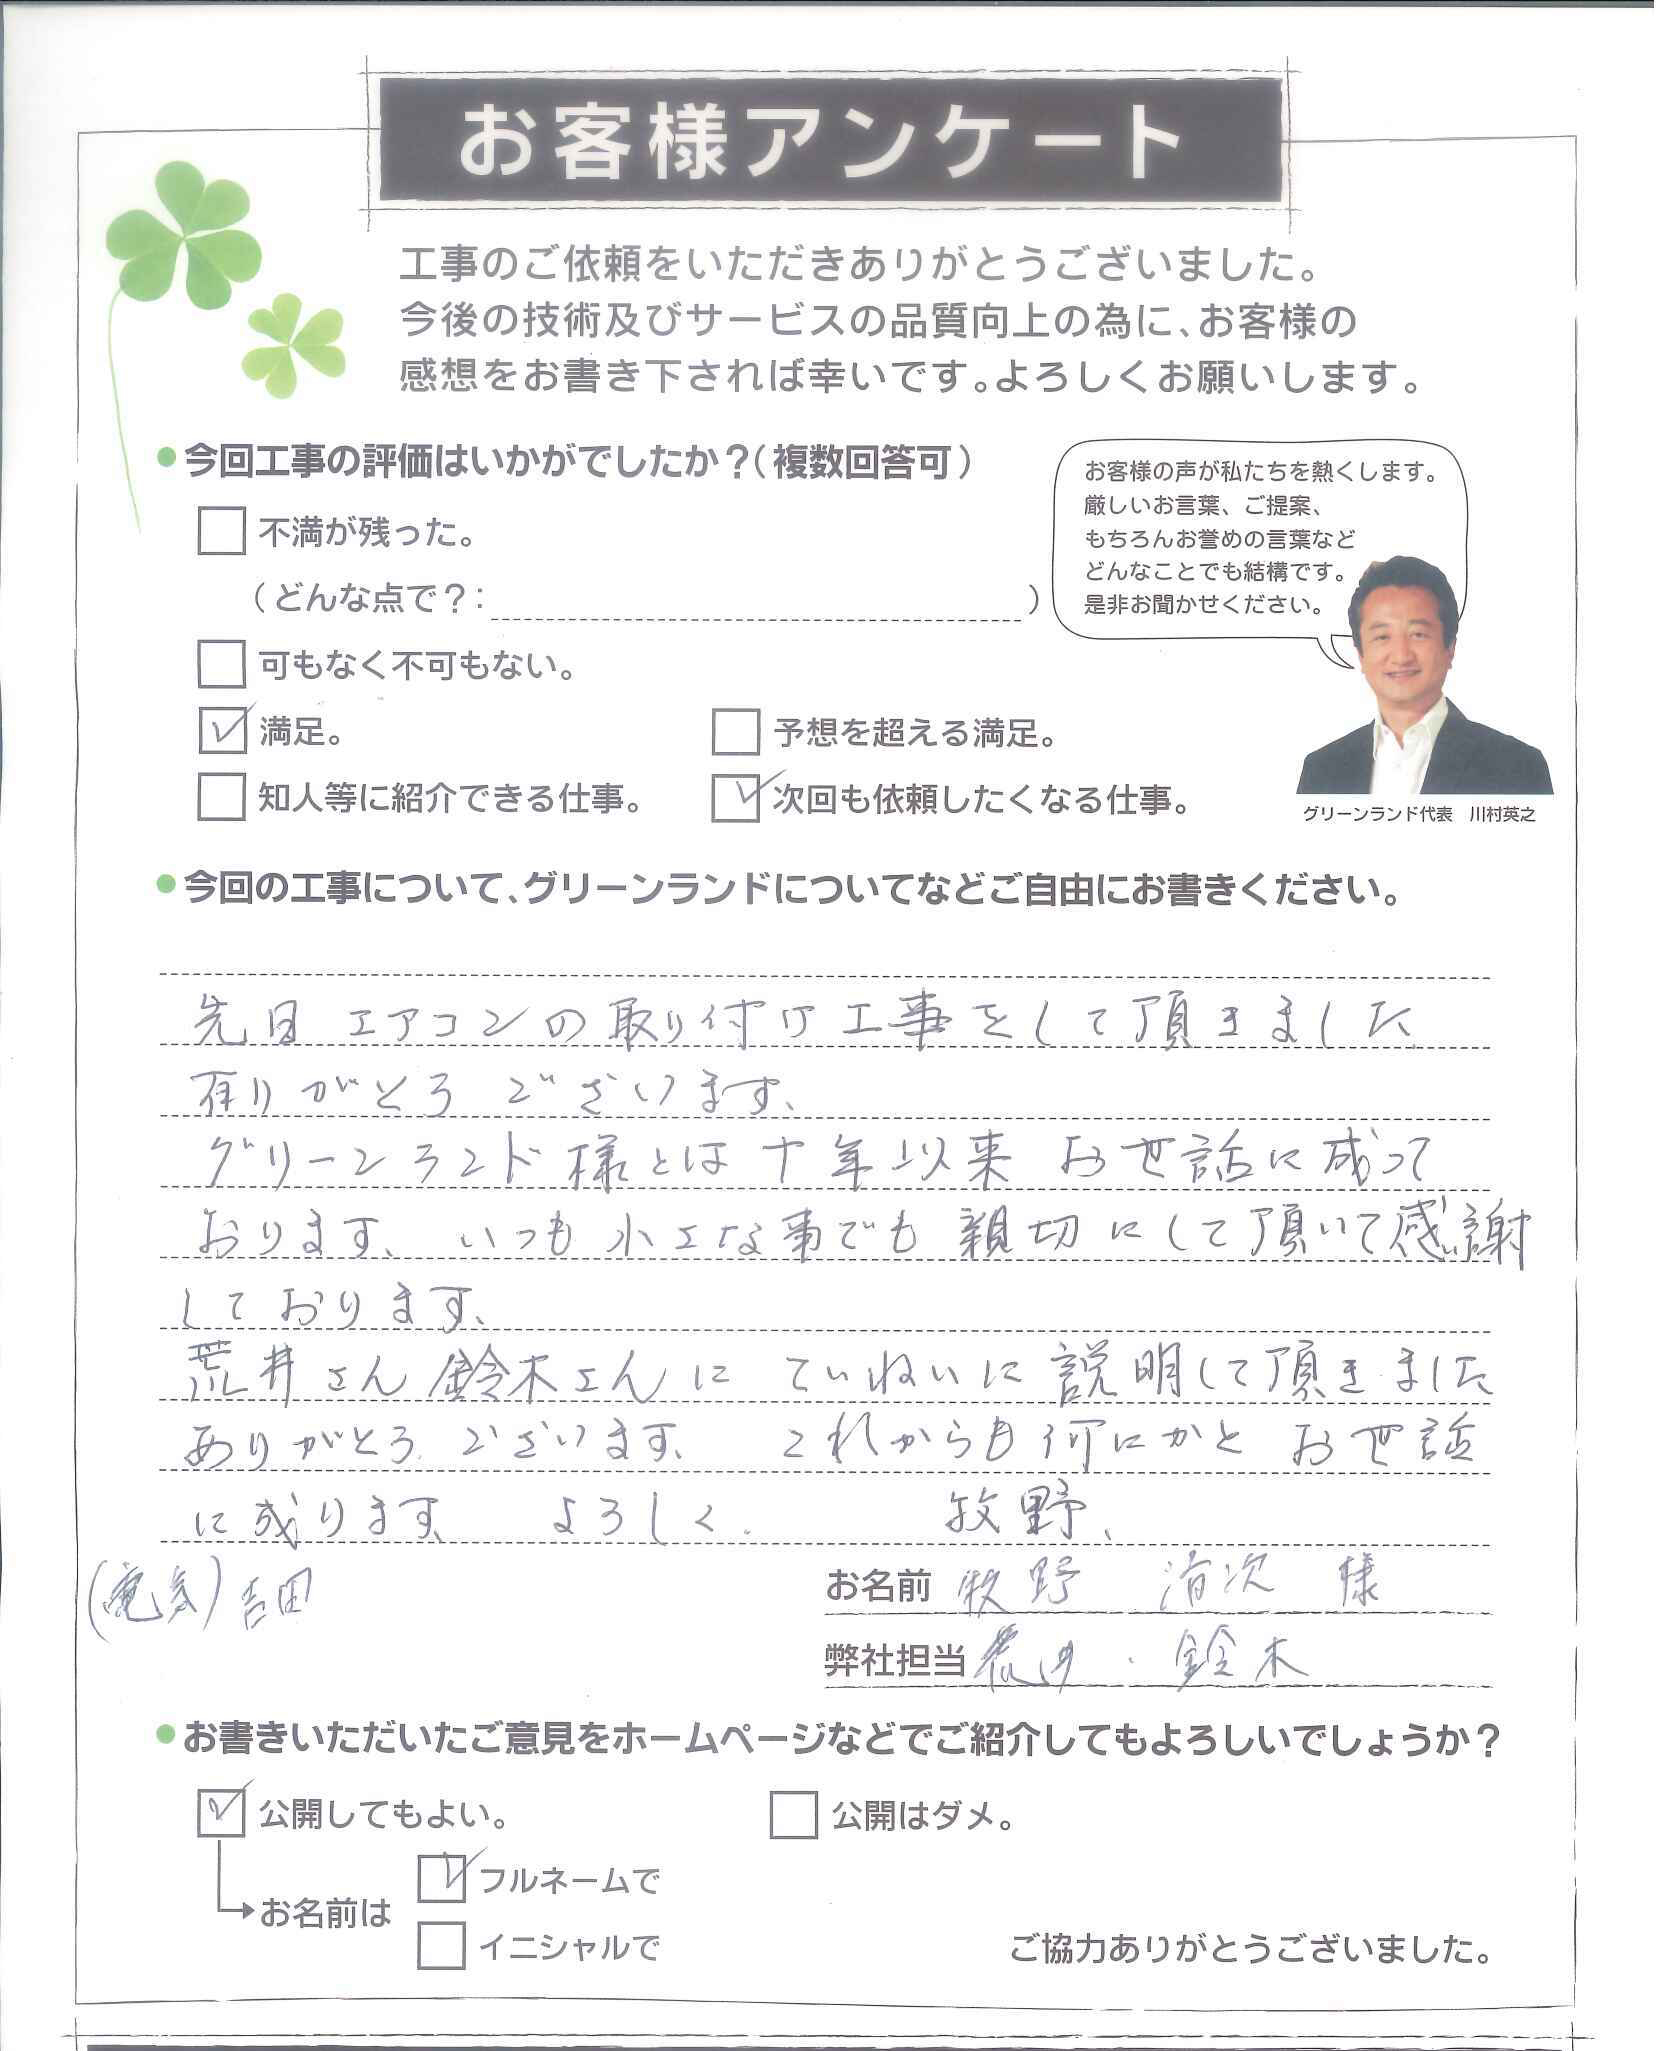 お客様アンケート
工事のご依頼をいただきありがとうございました。
今後の技術及びサービスの品質向上の為に、お客様の
感想をお書き下されば幸いです。よろしくお願いします。
今回工事の評価はいかがでしたか？（複数回答可）
不満が残った。
（どんな点で？： ）
可もなく不可もない。
満足。
予想を超える満足。
知人等に紹介できる仕事。
次回も依頼したくなる仕事。
お客様の声が私たちを熱くします。
厳しいお言葉、ご提案、
もちろんお誉めの言葉など
どんなことでも結構です。
是非お聞かせください。
グリーンランド代表　川村英之
今回の工事について、グリーンランドについてなどご自由にお書きください。
先日 エアコンの取り付け工事をして頂きました
有りがとうございます、
グリーンランド様とは十年以来 お世話に成って
おります、いつも小さな事でも親切にして頂いて感謝
しております、
荒井さん鈴木さんに ていねいに説明して頂きました
ありがとうございます、 これからも何にかと お世話
に成ります、 よろしく. 牧野、
（電気）吉田
お名前 牧野 清次 様
弊社担当 荒井・鈴木
お書きいただいたご意見をホームページなどでご紹介してもよろしいでしょうか？
公開してもよい。
公開はダメ。
お名前は
フルネームで
イニシャルで
ご協力ありがとうございました。